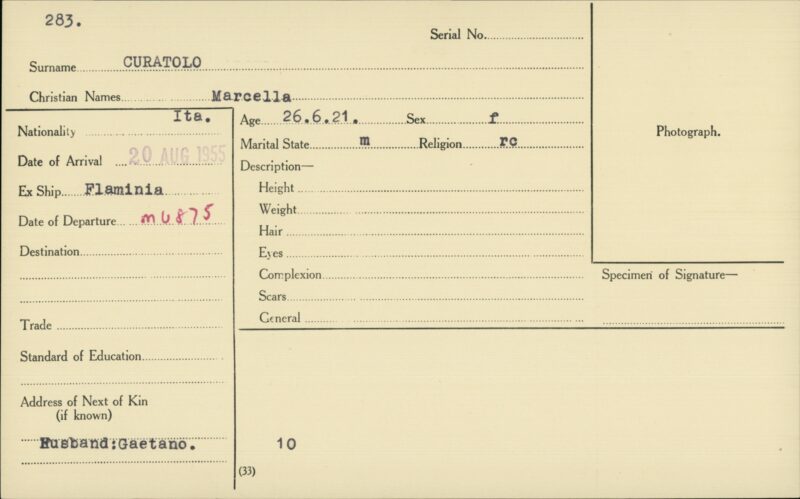 283.
Serial No.
Surname CURATOLO
Christian Names Marcella
Nationality Ita.
Age 26.6.21. Sex f
Marital State m Religion rc
Photograph.
Date of Arrival 20 AUG 1955
Description—
Ex Ship Flaminia
Height
Weight
Date of Departure MU875
Hair
Destination
Eyes
Complexion
Specimen of Signature—
Scars
General
Trade
Standard of Education
Address of Next of Kin
(if known)
Husband:Gaetano.
10
(33)